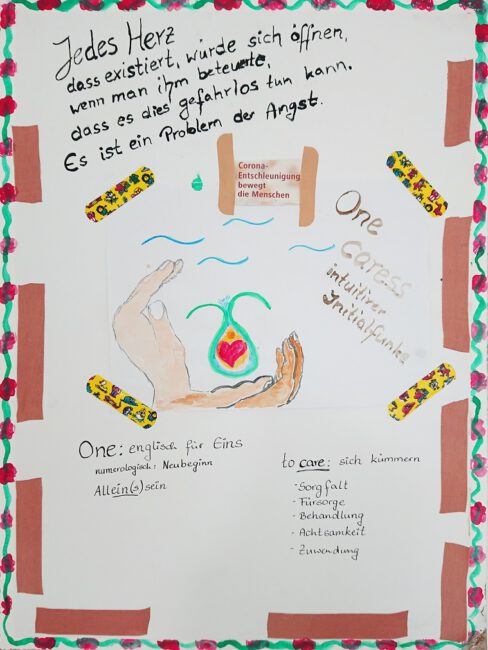 Jedes Herz
dass existiert, würde sich öffnen,
wenn man ihm beteuerte,
dass es dies gefahrlos tun kann.
Es ist ein Problem der Angst.
Corona-
Entschleunigung
bewegt
die Menschen
One
caress
intuitiver
Initialfunke
One: englisch für Eins
numerologisch: Neubeginn
Allein(s)sein
to care: sich kümmern
- Sorgfalt
- Fürsorge
- Behandlung
- Achtsamkeit
- Zuwendung